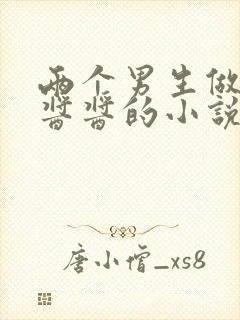 两个男生做
酱酱的小说
唐小僧_xs8